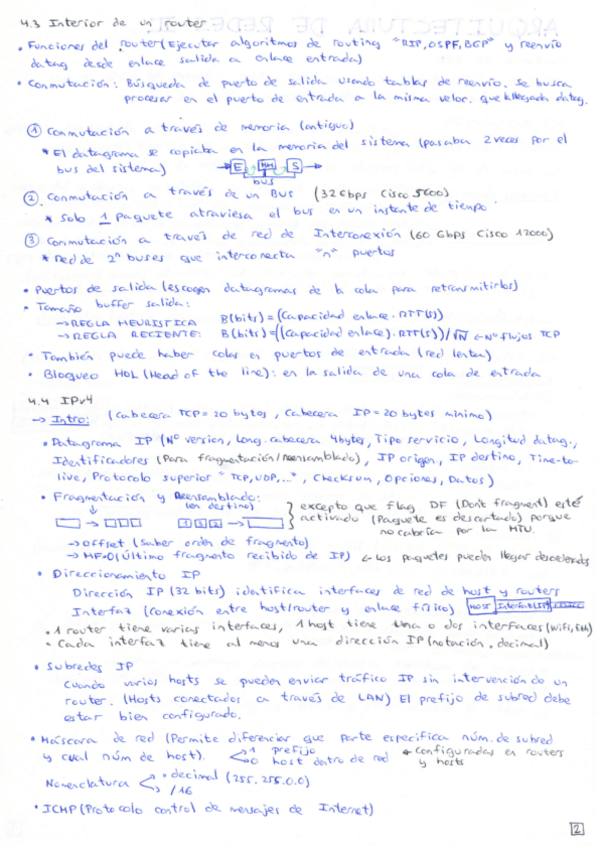 4.3 Interior de un router
• Funciones del router (Ejecutar algoritmos de routing "RIP, OSPF, BGP" y reenvío
datag desde enlace salida a enlace entrada)
• Conmutación: Búsqueda de puerto de salida usando tablas de reenvío. Se busca
procesar en el puerto de entrada a la misma veloc. que llegada datag.
① Conmutación a través de memoria (antiguo)
* El datagrama se copiaba en la memoria del sistema (pasaba 2 veces por el
bus del sistema) E MM S
bus
② Conmutación a través de un Bus (32 Gbps Cisco 5600)
* Solo 1 paquete atraviesa el bus en un instante de tiempo
③ Conmutación a través de red de Interconexión (60 Gbps Cisco 12000)
* Red de 2ⁿ buses que interconecta "n" puertos
• Puertos de salida (escogen datagramas de la cola para retransmitirlos)
• Tamaño buffer salida:
→ REGLA HEURISTICA B(bits) = (Capacidad enlace · RTT(s))
→ REGLA RECIENTE: B(bits) = ((Capacidad enlace) · RTT(s))/√N ← Nº flujos TCP
• También puede haber colas en puertos de entrada (red lenta)
• Bloqueo HOL (Head of the line): en la salida de una cola de entrada
4.4 IPv4
→ Intro: (Cabecera TCP = 20 bytes, Cabecera IP = 20 bytes mínimo)
• Datagrama IP (Nº version, Long. cabecera 4bytes, Tipo servicio, Longitud datag.,
Identificadores (Para fragmentación/reensamblado), IP origen, IP destino, Time-to-
live, Protocolo superior "TCP, UDP,...", Checksum, Opciones, Datos)
• Fragmentación y Reensamblado:
(en destino)
excepto que flag DF (Don't fragment) esté
activado (Paquete es descartado) porque
no cabría por la MTU.
1 2 3
→ Offset (Saber orden de fragmento)
→ MF=0 (Último fragmento recibido de IP) ← Los paquetes pueden llegar desordenados
• Direccionamiento IP
Dirección IP (32 bits) identifica interfaces de red de host y routers
Interfaz (conexión entre host/router y enlace físico) HOST Interfaz (IP)
• 1 router tiene varias interfaces, 1 host tiene una o dos interfaces (Wifi, Eth)
• Cada interfaz tiene al menos una dirección IP (notación, decimal)
• Subredes IP
Cuando varios hosts se pueden enviar tráfico IP sin intervención de un
router. (Hosts conectados a través de LAN) El prefijo de subred debe
estar bien configurado.
• Máscara de red (Permite diferenciar que parte especifica núm. de subred
y cual núm de host). 1 prefijo ← configuradas en routers
0 host dentro de red y hosts
Nomenclatura • decimal (255.255.0.0)
• /16
• ICMP (Protocolo control de mensajes de Internet)
2